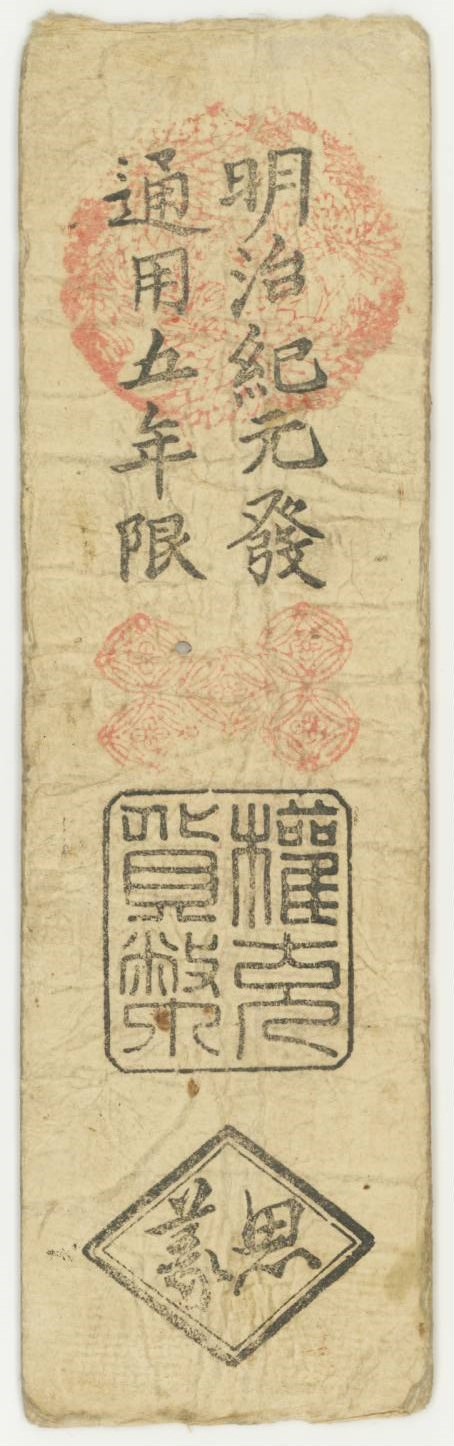 明治紀元發
通用五年限
權充
貨幣
思義